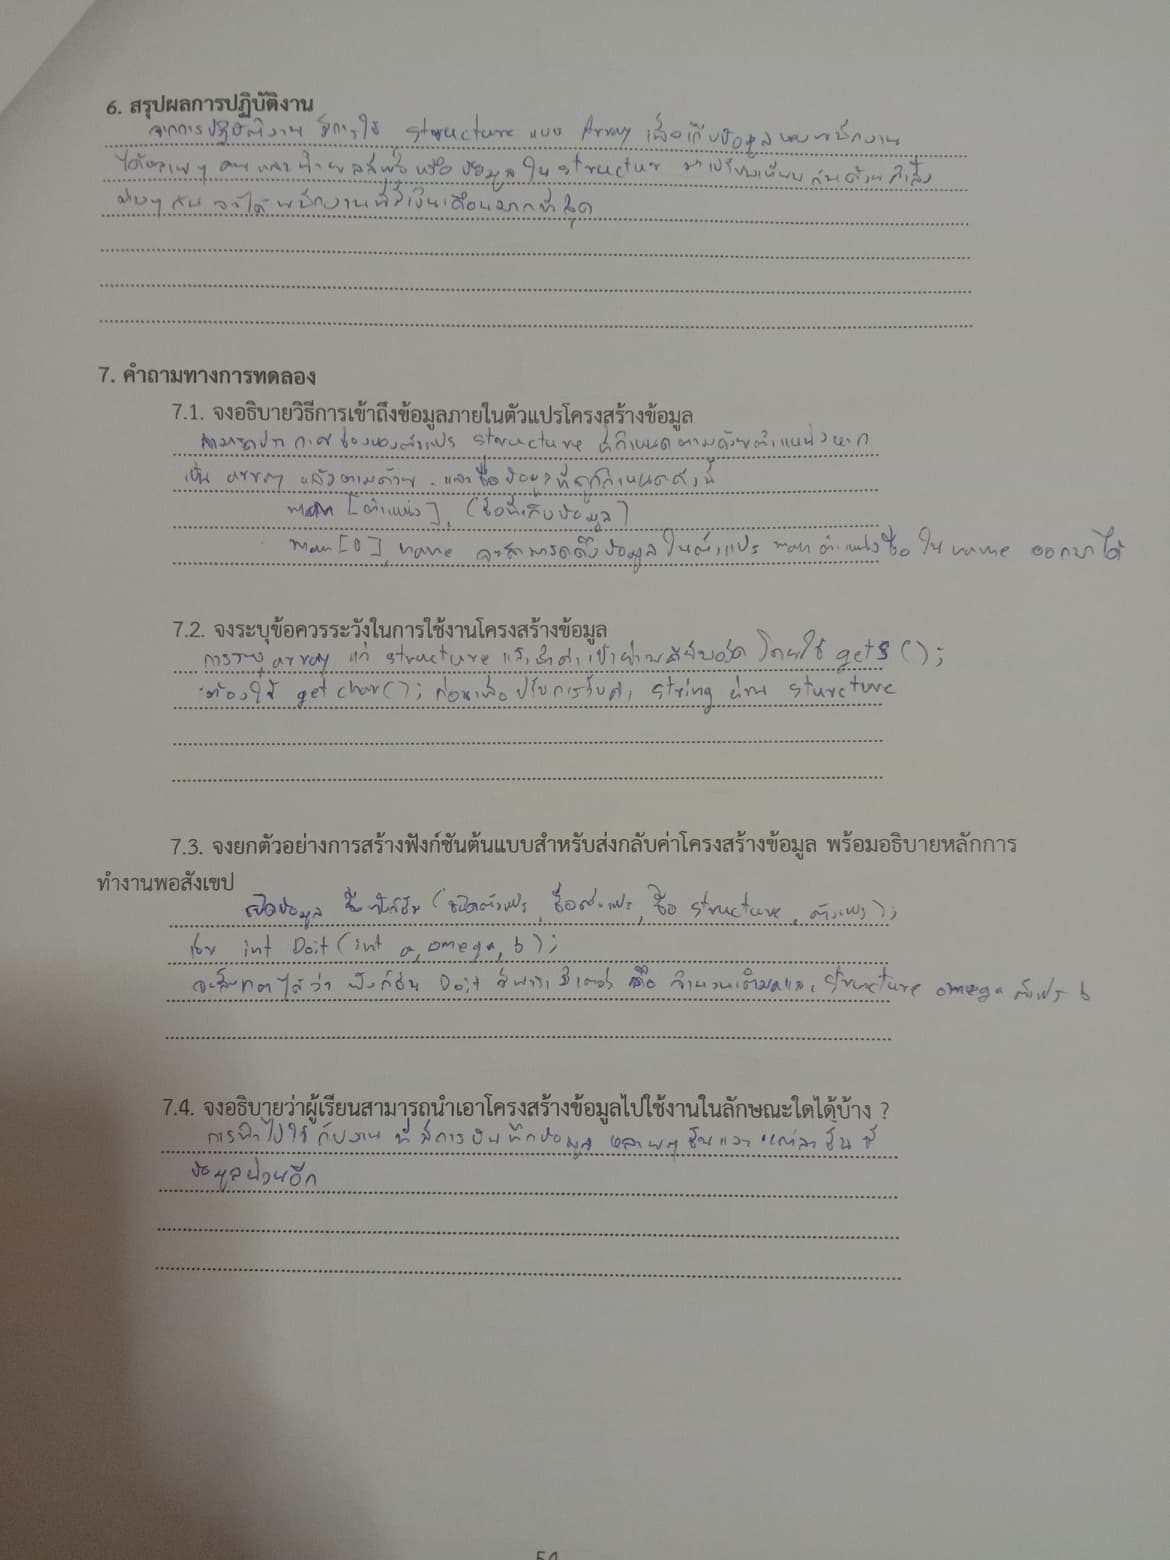 6. สรุปผลการปฏิบัติงาน
จากการปฏิบัติงาน มีการใช้ structure แบบ Array เพื่อเก็บข้อมูลของพนักงาน
ได้หลายๆ คน ข้อมูลใน structur มาเปรียบเทียบกันด้วยคำสั่ง
ต่างๆ กัน จะได้พนักงานที่มีเงินเดือนมากที่สุด
7. คำถามทางการทดลอง
7.1. จงอธิบายวิธีการเข้าถึงข้อมูลภายในตัวแปรโครงสร้างข้อมูล
structure ที่กำหนดตามด้วยตำแหน่งหาก
เป็น array แล้วตามด้วย . และชื่อข้อมูลที่ถูกกำหนดดังนี้
man [ตำแหน่ง]. (ชื่อที่เก็บข้อมูล)
man [0].name จะสามารถดึงข้อมูลในตัวแปร man ตำแหน่ง ชื่อ ใน name ออกมาได้
7.2. จงระบุข้อควรระวังในการใช้งานโครงสร้างข้อมูล
การระบุ array แก่ structure แล้วนำค่าเข้าผ่านคีย์บอร์ด โดยใช้ gets ();
ต้องใช้ getchar(); ก่อนเพื่อปรับการรับค่า string ผ่าน structure
7.3. จงยกตัวอย่างการสร้างฟังก์ชันต้นแบบสำหรับส่งกลับค่าโครงสร้างข้อมูล พร้อมอธิบายหลักการ
ทำงานพอสังเขป
ชนิดข้อมูล ชื่อฟังก์ชัน (ชนิดตัวแปร, ชื่อตัวแปร, ชื่อ structure, ตัวแปร);
เช่น int Doit (int a, omega, b);
จะสังเกตได้ว่า ฟังก์ชัน Doit มีพารามิเตอร์ คือ จำนวนเต็มและ structure omega ตัวแปร b
7.4. จงอธิบายว่าผู้เรียนสามารถนำเอาโครงสร้างข้อมูลไปใช้งานในลักษณะใดได้บ้าง ?
การนำไปใช้กับงาน ที่มีการบันทึกข้อมูล หลายๆ ชั้นและ แต่ละชั้นมี
ข้อมูลย่อยอีก